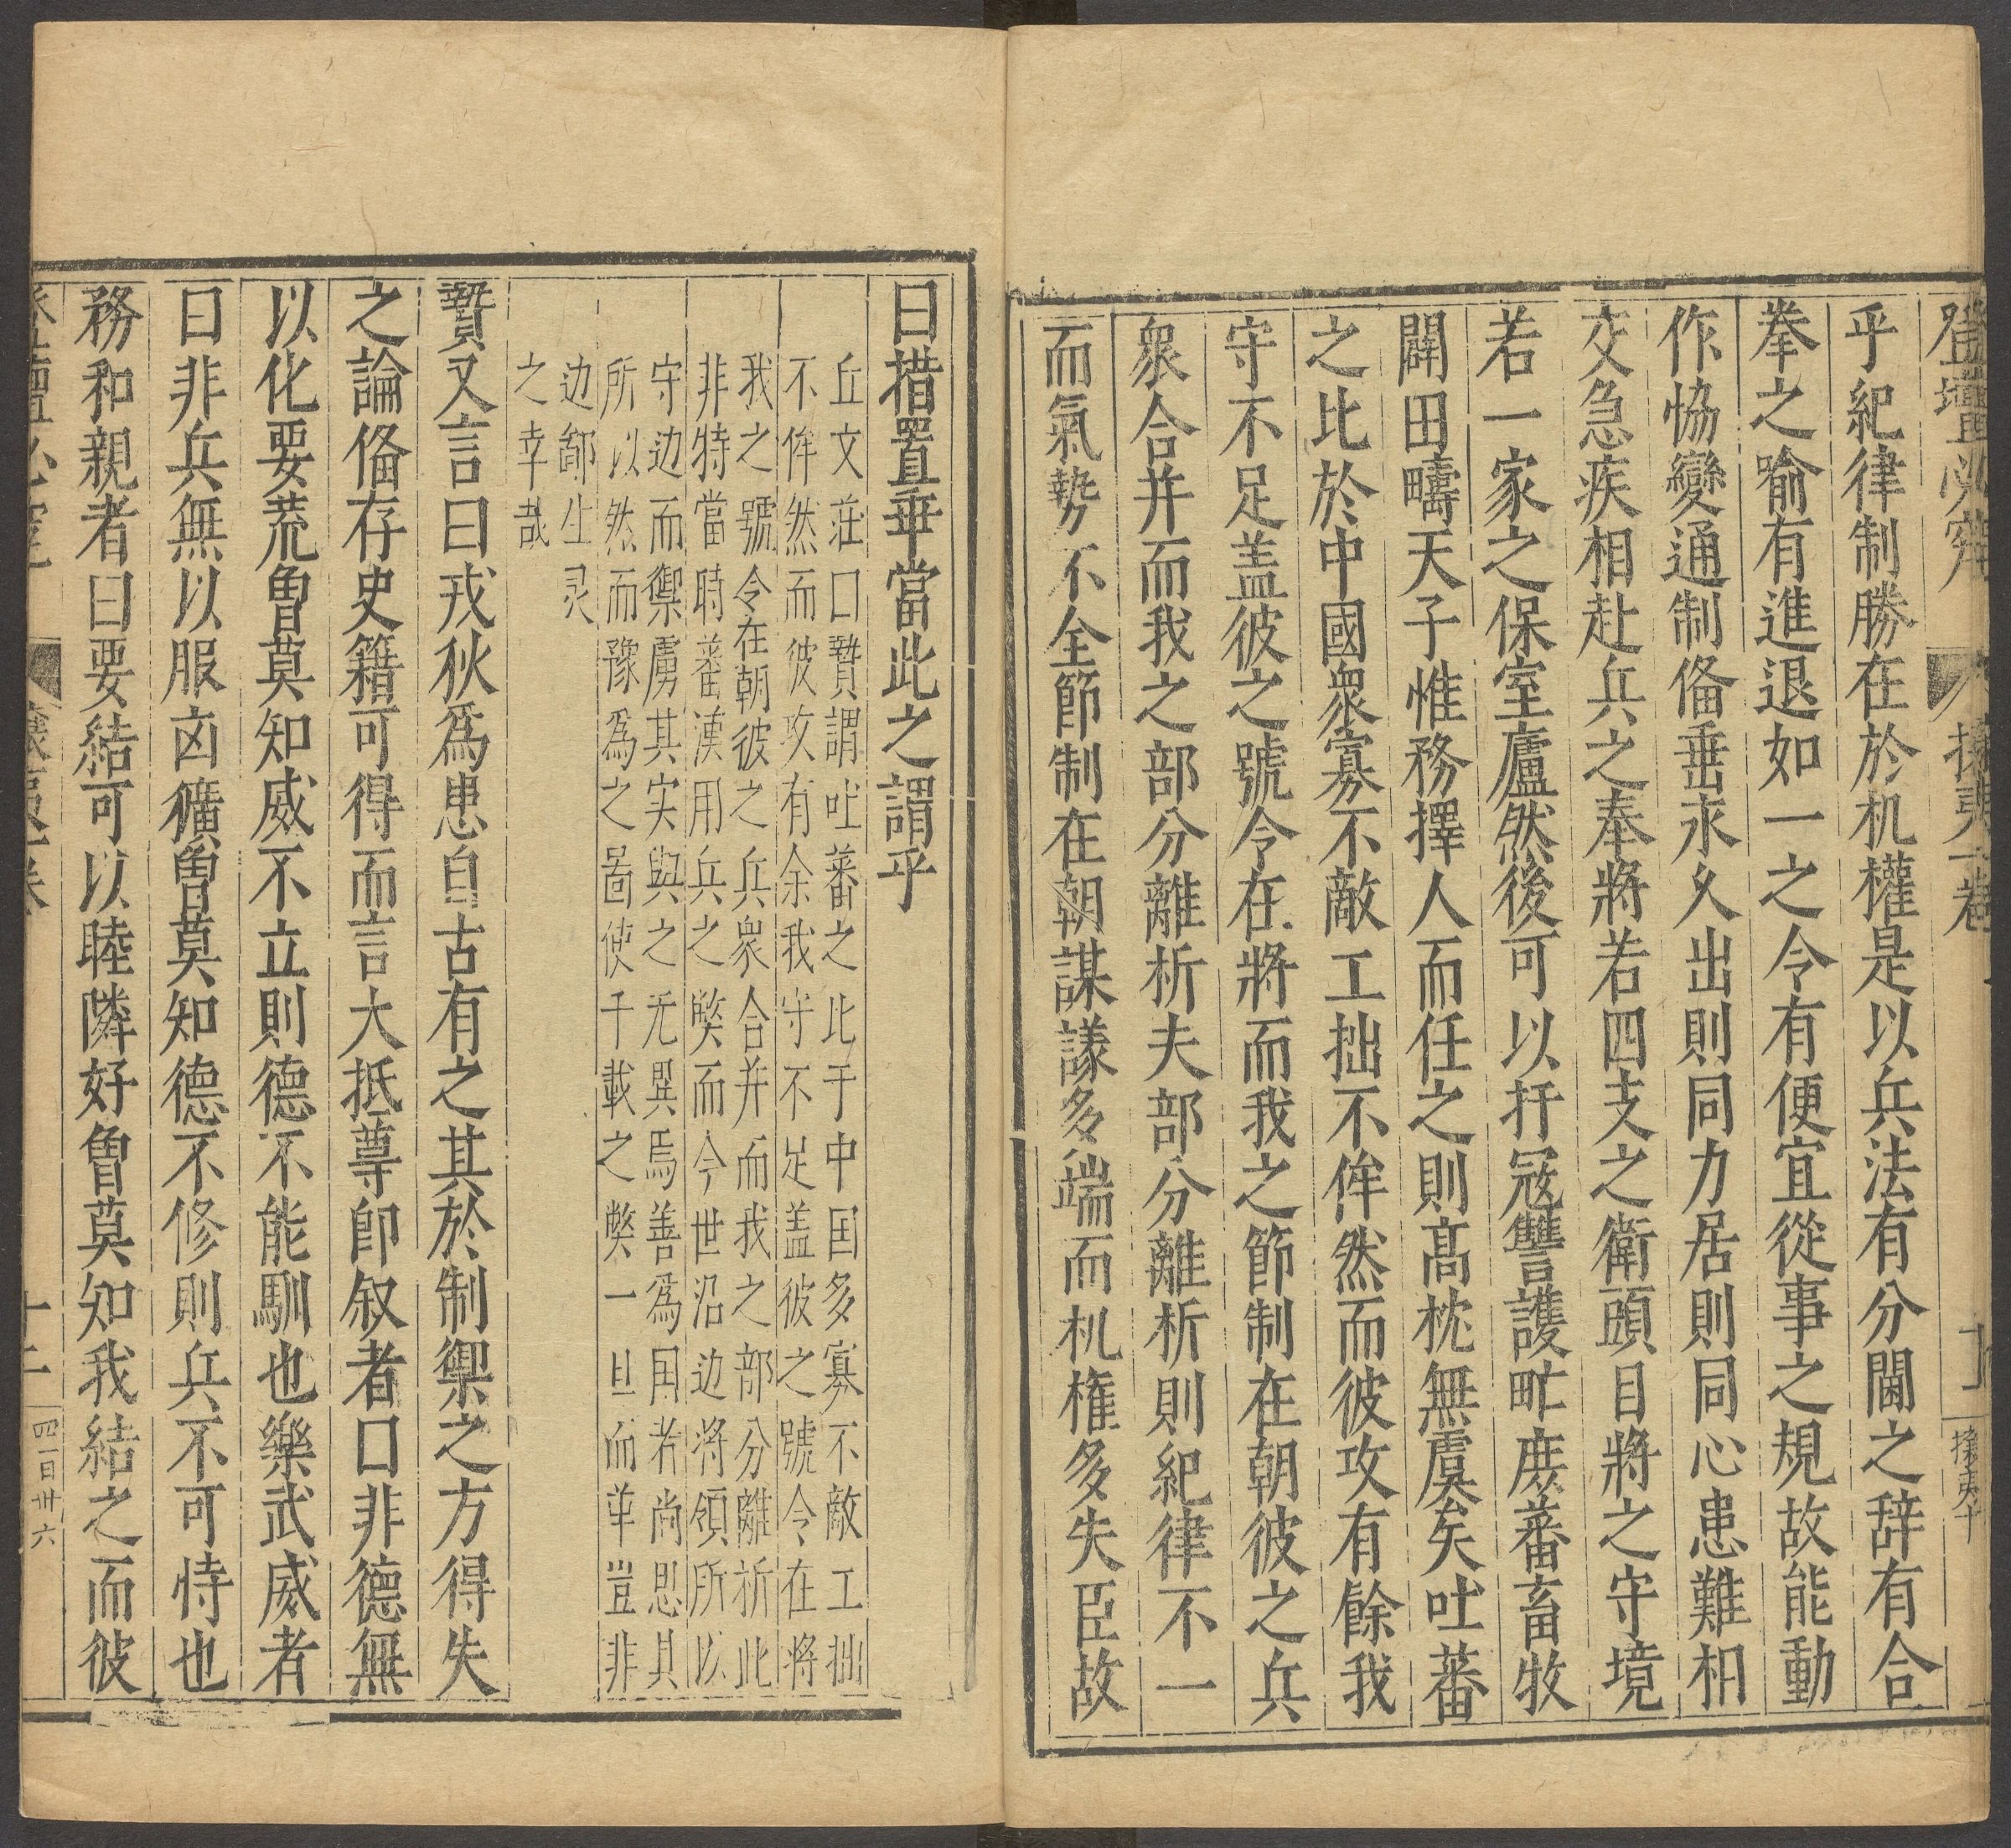 登壇必究
攘夷一卷
攘夷十
乎紀律制勝在於机權是以兵法有分閫之辞有合
拳之喻有進退如一之令有便宜從事之規故能動
作恊變通制俻垂永久出則同力居則同心患難相
交急疾相赴兵之奉將若四支之衛頭目將之守境
若一家之保室廬然後可以扞冦讐護甿庶蕃畜牧
闢田疇天子惟務擇人而任之則髙枕無虞矣吐蕃
之比於中國衆寡不敵工拙不侔然而彼攻有餘我
守不足盖彼之號令在將而我之節制在朝彼之兵
衆合并而我之部分離析夫部分離析則紀律不一
而氣勢不全節制在朝謀議多端而机権多失臣故
曰措置乖當此之謂乎
丘文莊曰贄謂吐蕃之比于中囯多寡不敵工拙
不侔然而彼攻有余我守不足盖彼之號令在將
我之號令在朝彼之兵衆合并而我之部分離析此
非特當時蕃漢用兵之獘而今世沿边将領所以
守边而禦虜其実與之无異焉善為囯者尚思其
所以然而豫為之啚使千載之獘一旦而革豈非
边鄙生灵
之幸哉
贄又言曰戎狄為患自古有之其於制禦之方得失
之論俻存史籍可得而言大抵尊卽叙者曰非德無
以化要荒曾莫知威不立則德不能馴也樂武威者
曰非兵無以服凶獷曾莫知德不修則兵不可恃也
務和親者曰要結可以睦隣好曾莫知我結之而彼
登壇必究
攘夷一卷
十二
四一日卅六